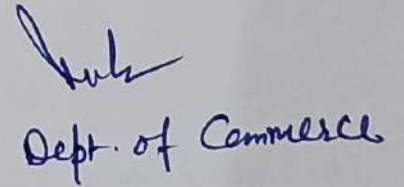 Dept. of Commerce